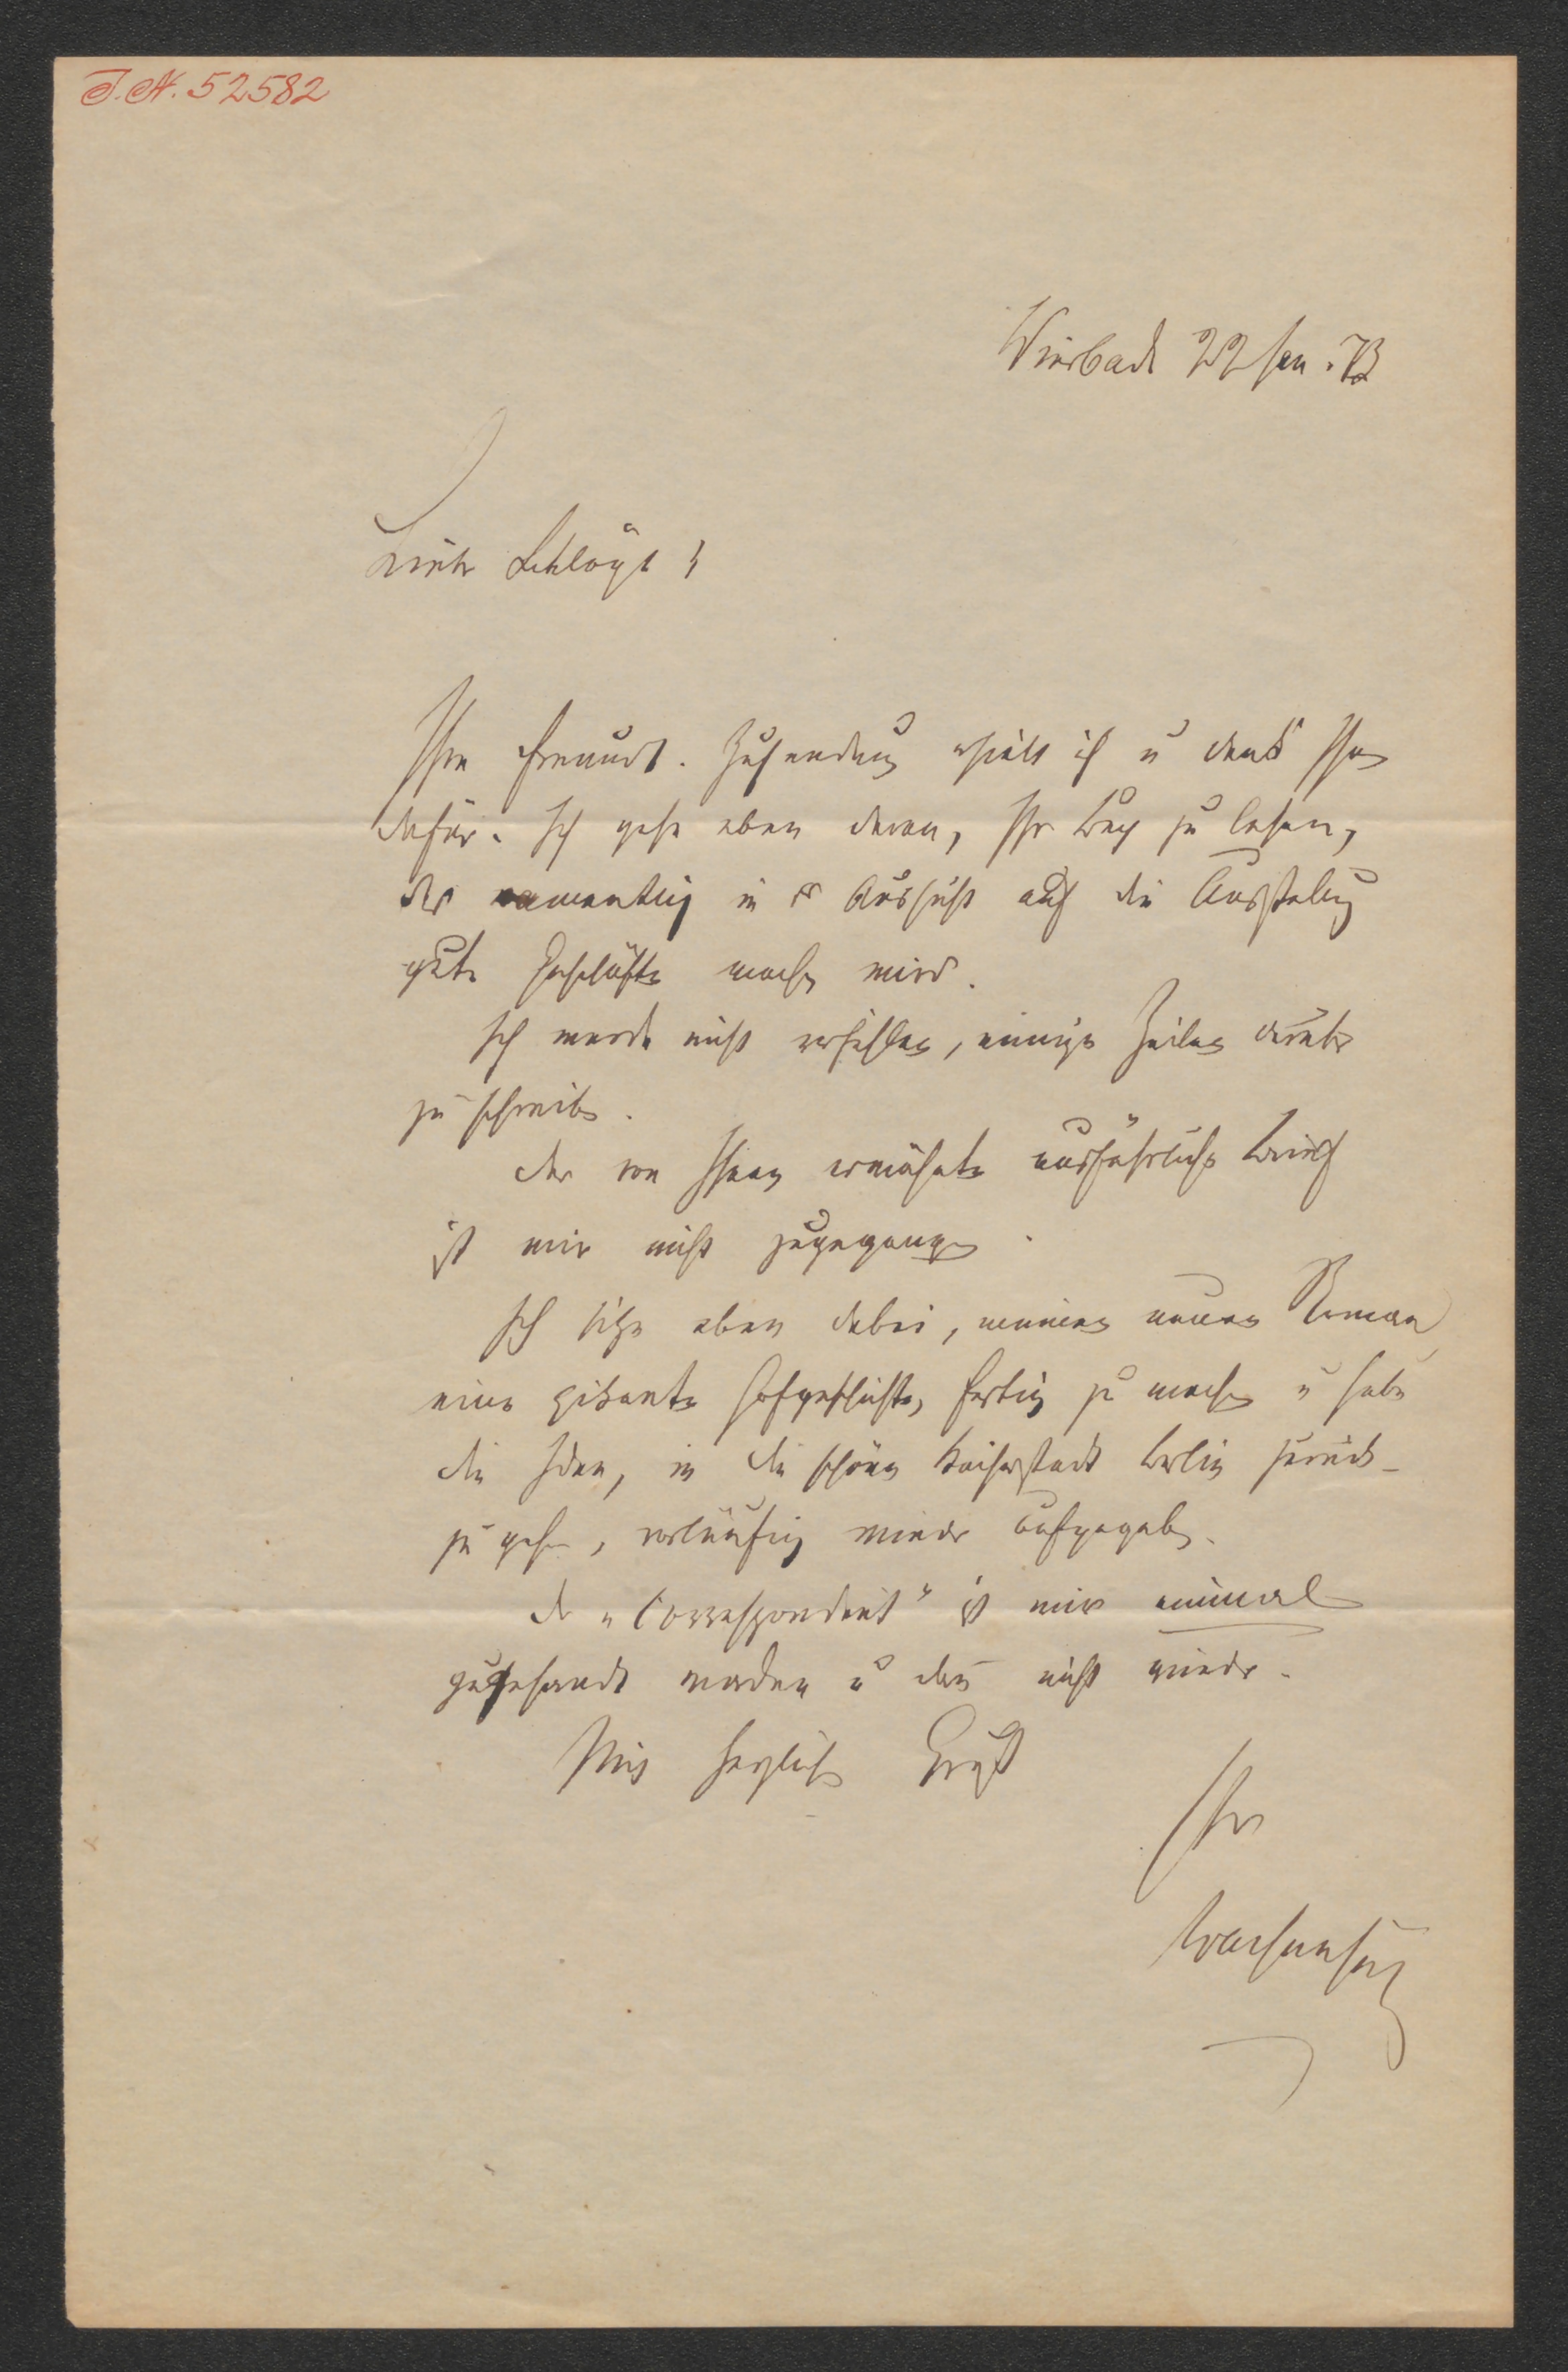 I.N. 52582
Wiesbad 22 Jan. 73
Lieber Schlögl!
Ihre freundl. Zusendung erhielt ich u danke Ihnen
dafür. Ich gehe eben daran, Ihr Buch zu lesen,
das namentlich in der Aussicht auf die Ausstellung
gute Geschäfte machen wird.
Ich werde nicht verfehlen, einige Zeilen darüber
zu schreiben.
Der von Ihnen erwähnte ausführliche Brief
ist mir nicht zugegangen.
Ich sitze eben dabei, meinen neuen Roman,
eine pikante Hofgeschichte, fertig zu machen u habe
die Idee, in die schöne Kaiserstadt Berlin zurück-
zu gehen, vorläufig wieder aufgegeben.
Der „Correspondent" ist mir einmal
zugesandt worden u dann nicht wieder.
Mit herzlichem Gruß
Ihr
Wachenhusen